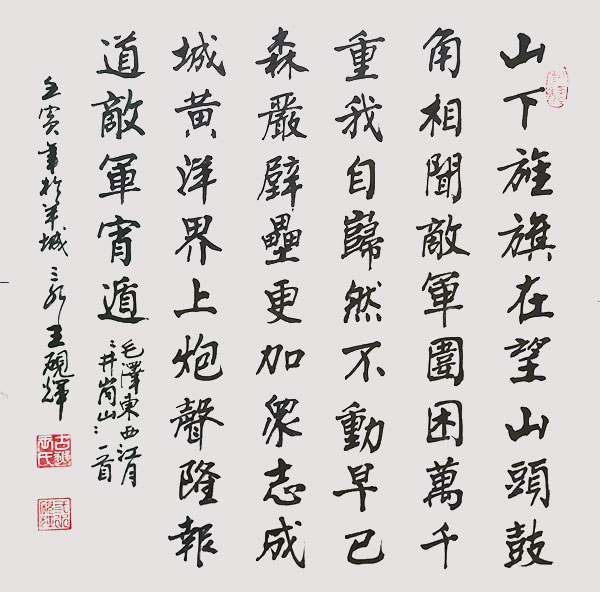 山下旌旗在望山頭鼓
角相聞敵軍圍困萬千
重我自歸然不動早已
森嚴壁壘更加眾志成
城黃洋界上炮聲隆報
道敵軍宵遁
毛澤東西江月
井崗山一首
壬寅年於羊城三水王硯輝